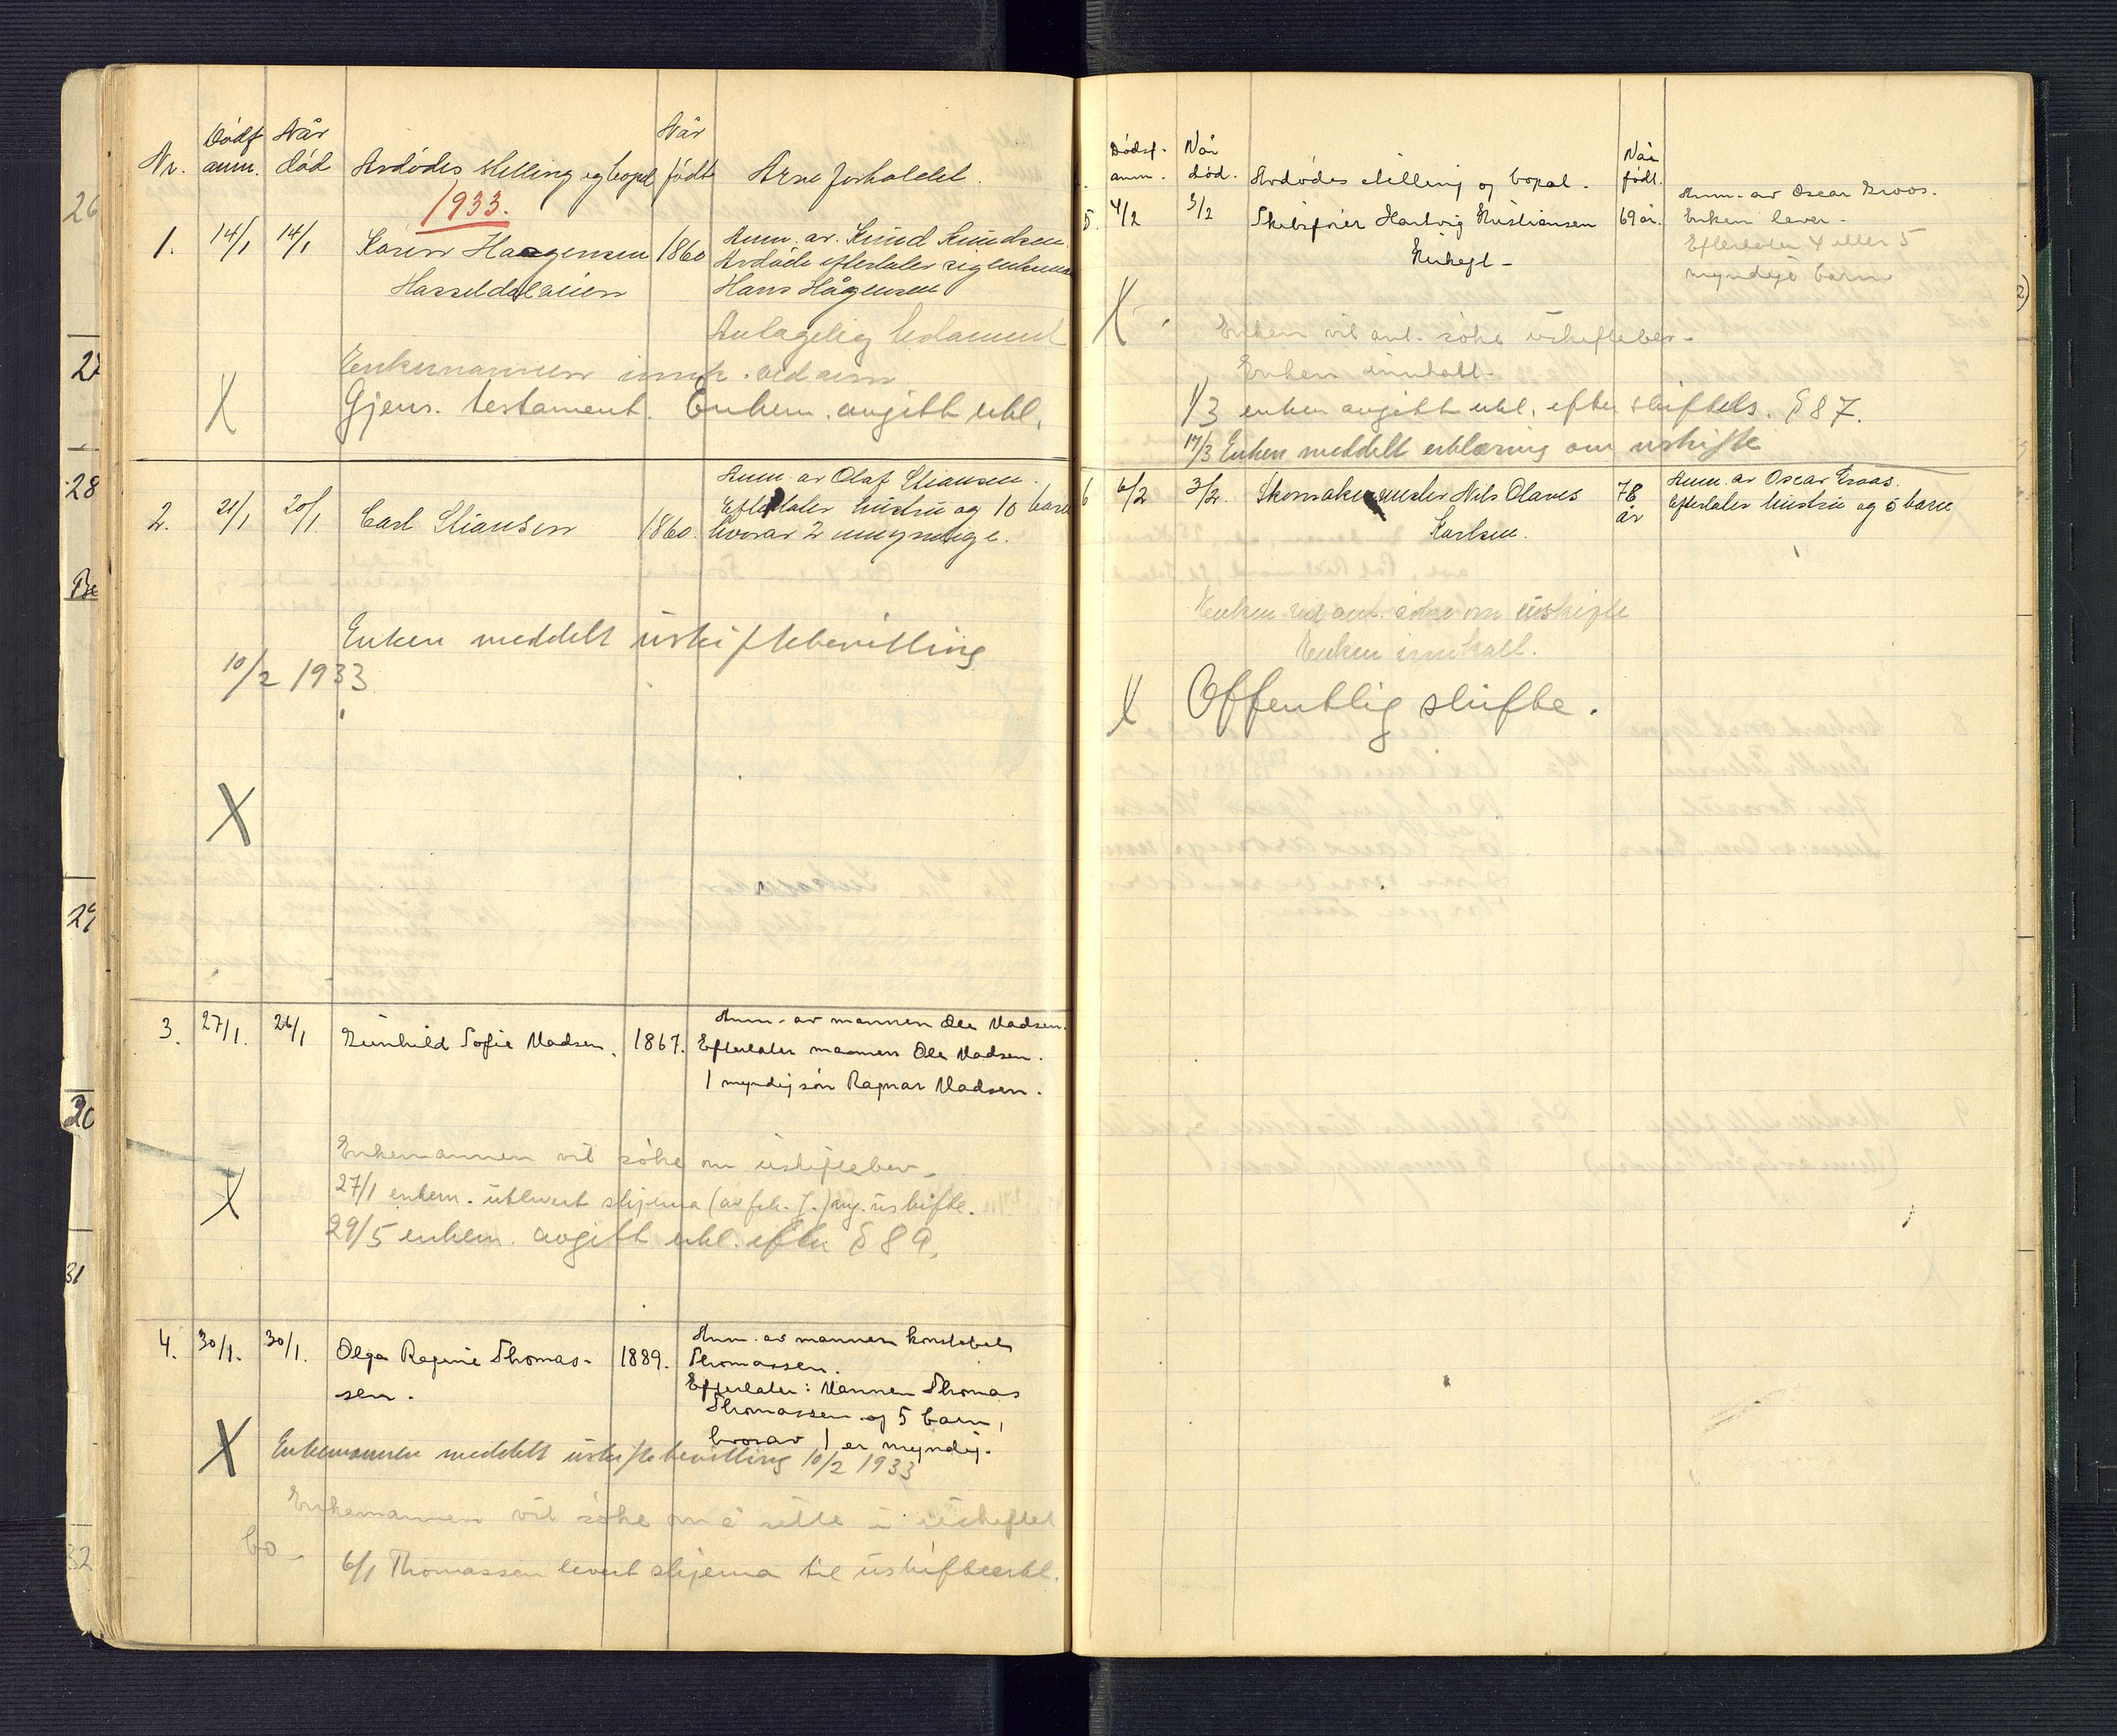 Nr. Dødsf. anm. Når død Avdødes stilling og bopel Når født Arveforholdet.
1933.
1. 14/1 14/1 Karen Haagensen 1860 Anm. av Knud Knudsen.
Avdøde efterlater sig enkemann
Hasseldalveien Hans Hågensen
Antagelig testament
Enkemannen innk.
Gjens. testament. Enkem. avgitt erkl.
X
2. 21/1 20/1. Carl Stiansen 1860. Anm. av Olaf Stiansen.
Efterlater hustru og 10 barn
hvorav 2 umyndige.
Enken meddelt uskiftebevilling
10/2 1933
X
3. 27/1. 26/1 Gunhild Sofie Madsen. 1867. Anm. av mannen Ole Madsen.
Efterlater mannen Ole Madsen.
1 myndig søn Ragnar Madsen.
Enkemannen vil søke om uskiftebev.
27/1 enkem. utlevert skjema (av fch. J.) ang. uskifte.
X
29/5 enkem. avgitt erkl. efter § 89.
4. 30/1. 30/1. Olga Regine Thomas- 1889. Anm. av mannen konstabel
sen. Thomassen.
Efterlater: Mannen Thomas
Thomassen og 5 barn,
hvorav 1 er myndig.
X Enkemannen meddelt uskiftebevilling 10/2 1933
Enkemannen vil søke om å sitte i uskiftet
bo -
6/1 Thomassen levert skjema til uskifteerkl.
Dødsf. anm. Når død. Avdødes stilling og bopel. Når født.
5. 4/2 3/2 Skibsfører Hartvig Kristiansen 69 år. Anm. av Oscar Groos.
Enken lever.
Efterlater 4 eller 5
myndige barn
X
Enken vil ant. søke uskiftebev.
Enken innkalt.
1/3 enken avgitt erkl. efter skiftels. § 87.
17/3 Enken meddelt erklæring om uskifte
6 6/2 3/2. Skomakermester Nils Olaves 78 år Anm. av Oscar Groos.
Karlsen. Efterlater hustru og 5 barn
Enken vil ant. søke om uskifte
Enken innkalt.
X Offentlig skifte.
26
27
28
29
31
32